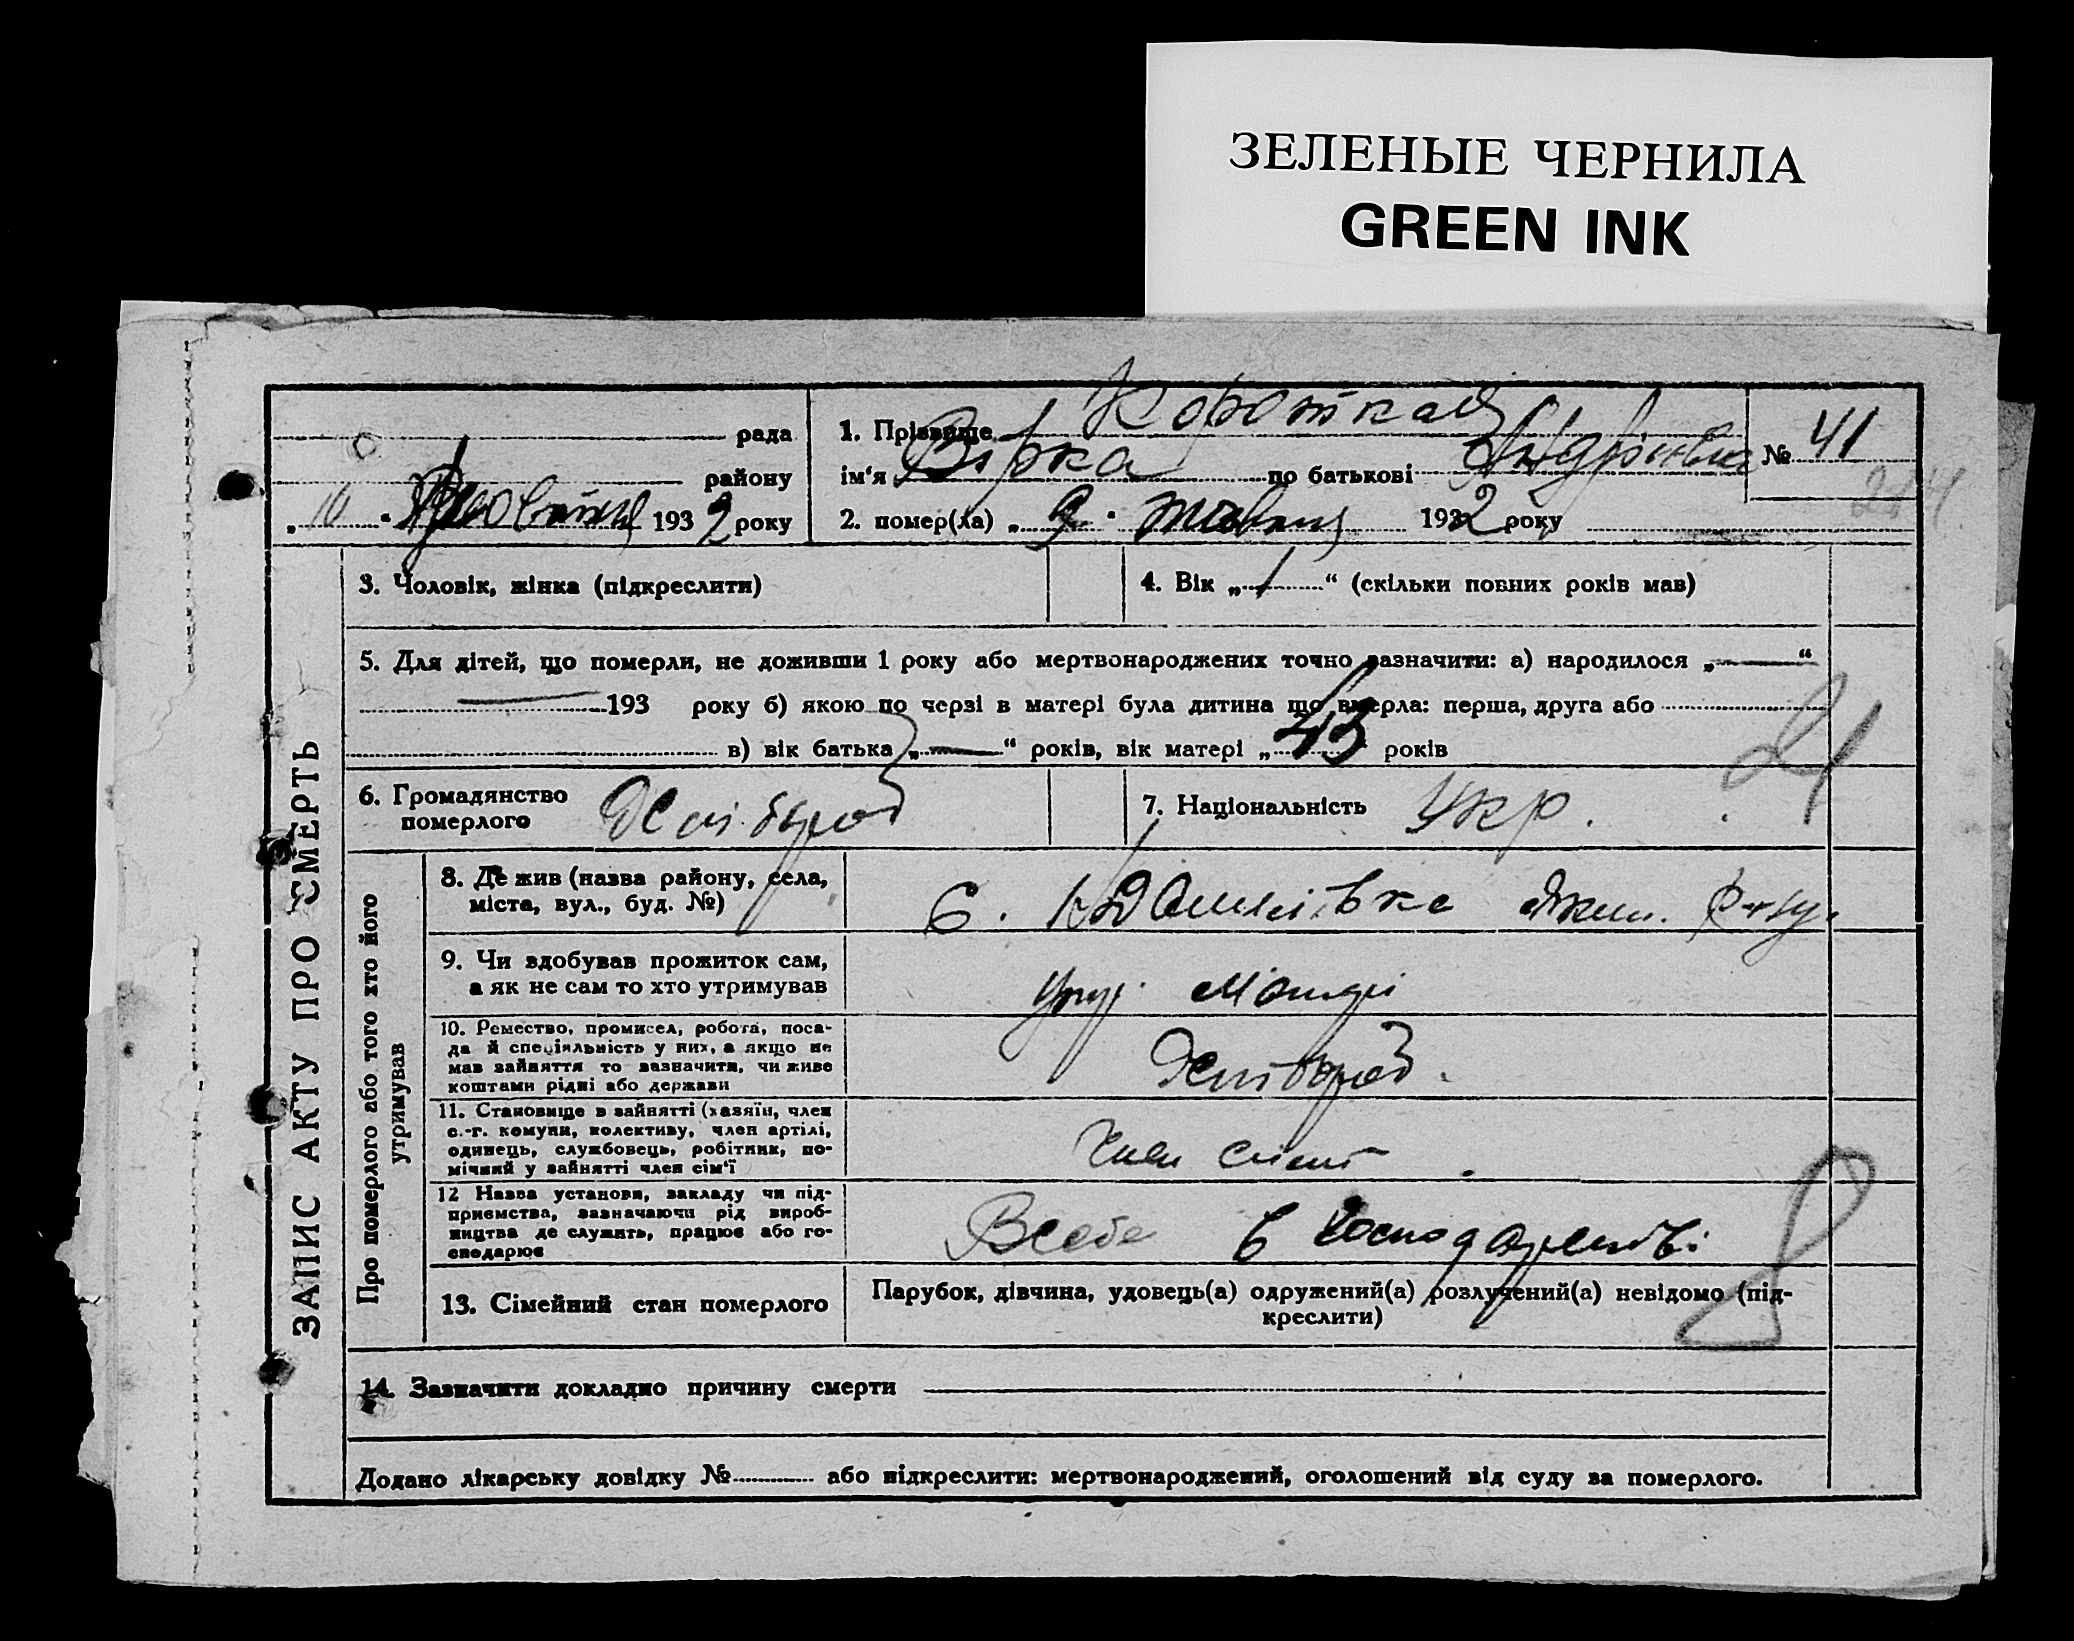 ЗЕЛЕНЫЕ ЧЕРНИЛА
GREEN INK
рада
району
„ 10 “ 1932 року
1. Прізвище Коротка
ім'я Вірка по батькові Андріївна
2. помер(ла) „ 9 “ жовтня 1932 року
№ 41
ЗАПИС АКТУ ПРО СМЕРТЬ
3. Чоловік, жінка (підкреслити)
4. Вік „ 1 “ (скільки повних років мав)
5. Для дітей, що померли, не доживши 1 року або мертвонароджених точно зазначити: а) народилося „ — “
— 193 року б) якою по черзі в матері була дитина що вмерла: перша, друга або
в) вік батька „ — “ років, вік матері „ 43 “ років
6. Громадянство
померлого
7. Національність Укр.
Про померлого або того хто його
утримував
8. Де жив (назва району, села,
міста, вул., буд. №)
с.
9. Чи здобував прожиток сам,
а як не сам то хто утримував
10. Ремество, промисел, робота, поса-
да й спеціяльність у них, а якщо не
мав зайняття то зазначити, чи живе
коштами рідні або держави
11. Становище в зайнятті (хазяїн, член
с.-г. комуни, колективу, член артілі,
одинець, службовець, робітник, по-
мічний у зайнятті член сім'ї
член
12 Назва установи, закладу чи під-
приємства, зазначаючи рід вироб-
ництва де служить, працює або го-
сподарює
В себе в господарстві
13. Сімейний стан померлого
Парубок, дівчина, удовець(а) одружений(а) розлучений(а) невідомо (під-
креслити)
14. Зазначити докладно причину смерти
Додано лікарську довідку № або підкреслити: мертвонароджений, оголошений від суду за померлого.